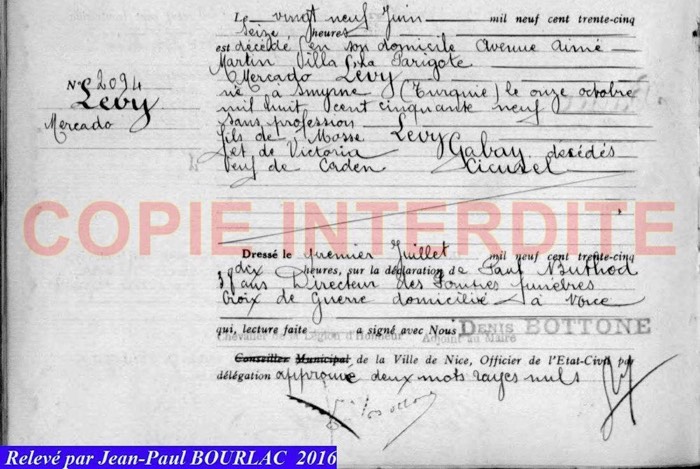 Le vingt neuf Juin mil neuf cent trente-cinq
seize heures
est décédé en son domicile Avenue Aimé
Martin Villa Parigote
Mercado Lévy
né à Smyrne (Turquie) le onze octobre
mil huit cent cinquante neuf
sans profession
fils de Mosse Levy
et de Victoria Gabay décédés
veuf de Caden Cicurel
N° 2094
Levy
Mercado
COPIE INTERDITE
Dressé le premier Juillet mil neuf cent trente-cinq
dix heures, sur la déclaration de Paul Buthod
37 ans Directeur des Pompes funèbres
Croix de Guerre domicilié à Nice
qui, lecture faite a signé avec Nous DENIS BOTTONE
Chevalier de la Légion d'Honneur Adjoint au Maire
Conseiller Municipal de la Ville de Nice, Officier de l'Etat-Civil par
délégation approuvé deux mots rayés nuls
Relevé par Jean-Paul BOURLAC 2016